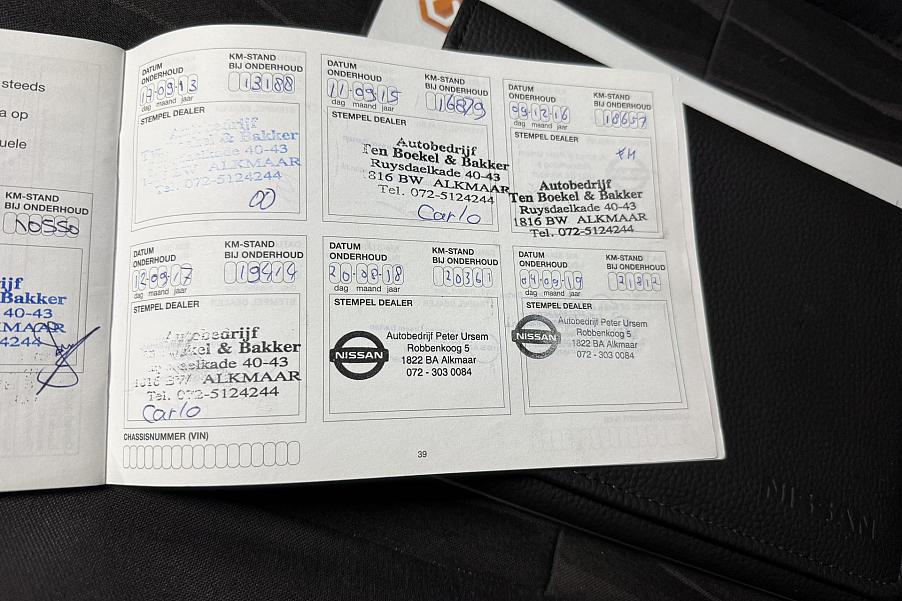 steeds
a op
uele
KM-STAND
BIJ ONDERHOUD
10550
ijf
Bakker
40-43
KMAAR
4244
DATUM
ONDERHOUD
KM-STAND
BIJ ONDERHOUD
17-09-13
13188
dag maand jaar
STEMPEL DEALER
Autobedrijf
Ten Boekel & Bakker
Ruysdaelkade 40-43
BW ALKMAAR
Tel. 072-5124244
DATUM
ONDERHOUD
KM-STAND
BIJ ONDERHOUD
11-09-15
16879
dag maand jaar
STEMPEL DEALER
Autobedrijf
Ten Boekel & Bakker
Ruysdaelkade 40-43
816 BW ALKMAAR
Tel. 072-5124244
Carlo
DATUM
ONDERHOUD
KM-STAND
BIJ ONDERHOUD
09-12-16
18657
dag maand jaar
STEMPEL DEALER
Autobedrijf
Ten Boekel & Bakker
Ruysdaelkade 40-43
1816 BW ALKMAAR
Tel. 072-5124244
DATUM
ONDERHOUD
KM-STAND
BIJ ONDERHOUD
12-09-17
19414
dag maand jaar
STEMPEL DEALER
Autobedrijf
& Bakker
40-43
1816 BW ALKMAAR
Tel. 072-5124244
Carlo
DATUM
ONDERHOUD
KM-STAND
BIJ ONDERHOUD
20-08-18
20361
dag maand jaar
STEMPEL DEALER
NISSAN
Autobedrijf Peter Ursem
Robbenkoog 5
1822 BA Alkmaar
072 - 303 0084
DATUM
ONDERHOUD
KM-STAND
BIJ ONDERHOUD
21812
dag maand jaar
STEMPEL DEALER
NISSAN
Autobedrijf Peter Ursem
Robbenkoog 5
1822 BA Alkmaar
072 - 303 0084
CHASSISNUMMER (VIN)
39
NISSAN